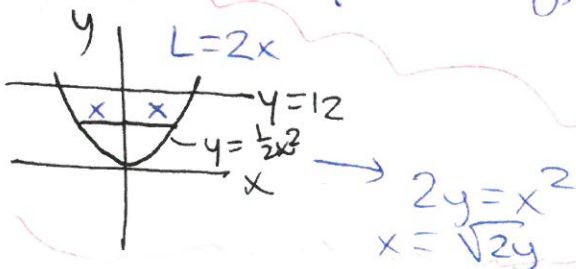 y
L=2x
x x
y=12
y=½x²
x
2y=x²
x=√2y